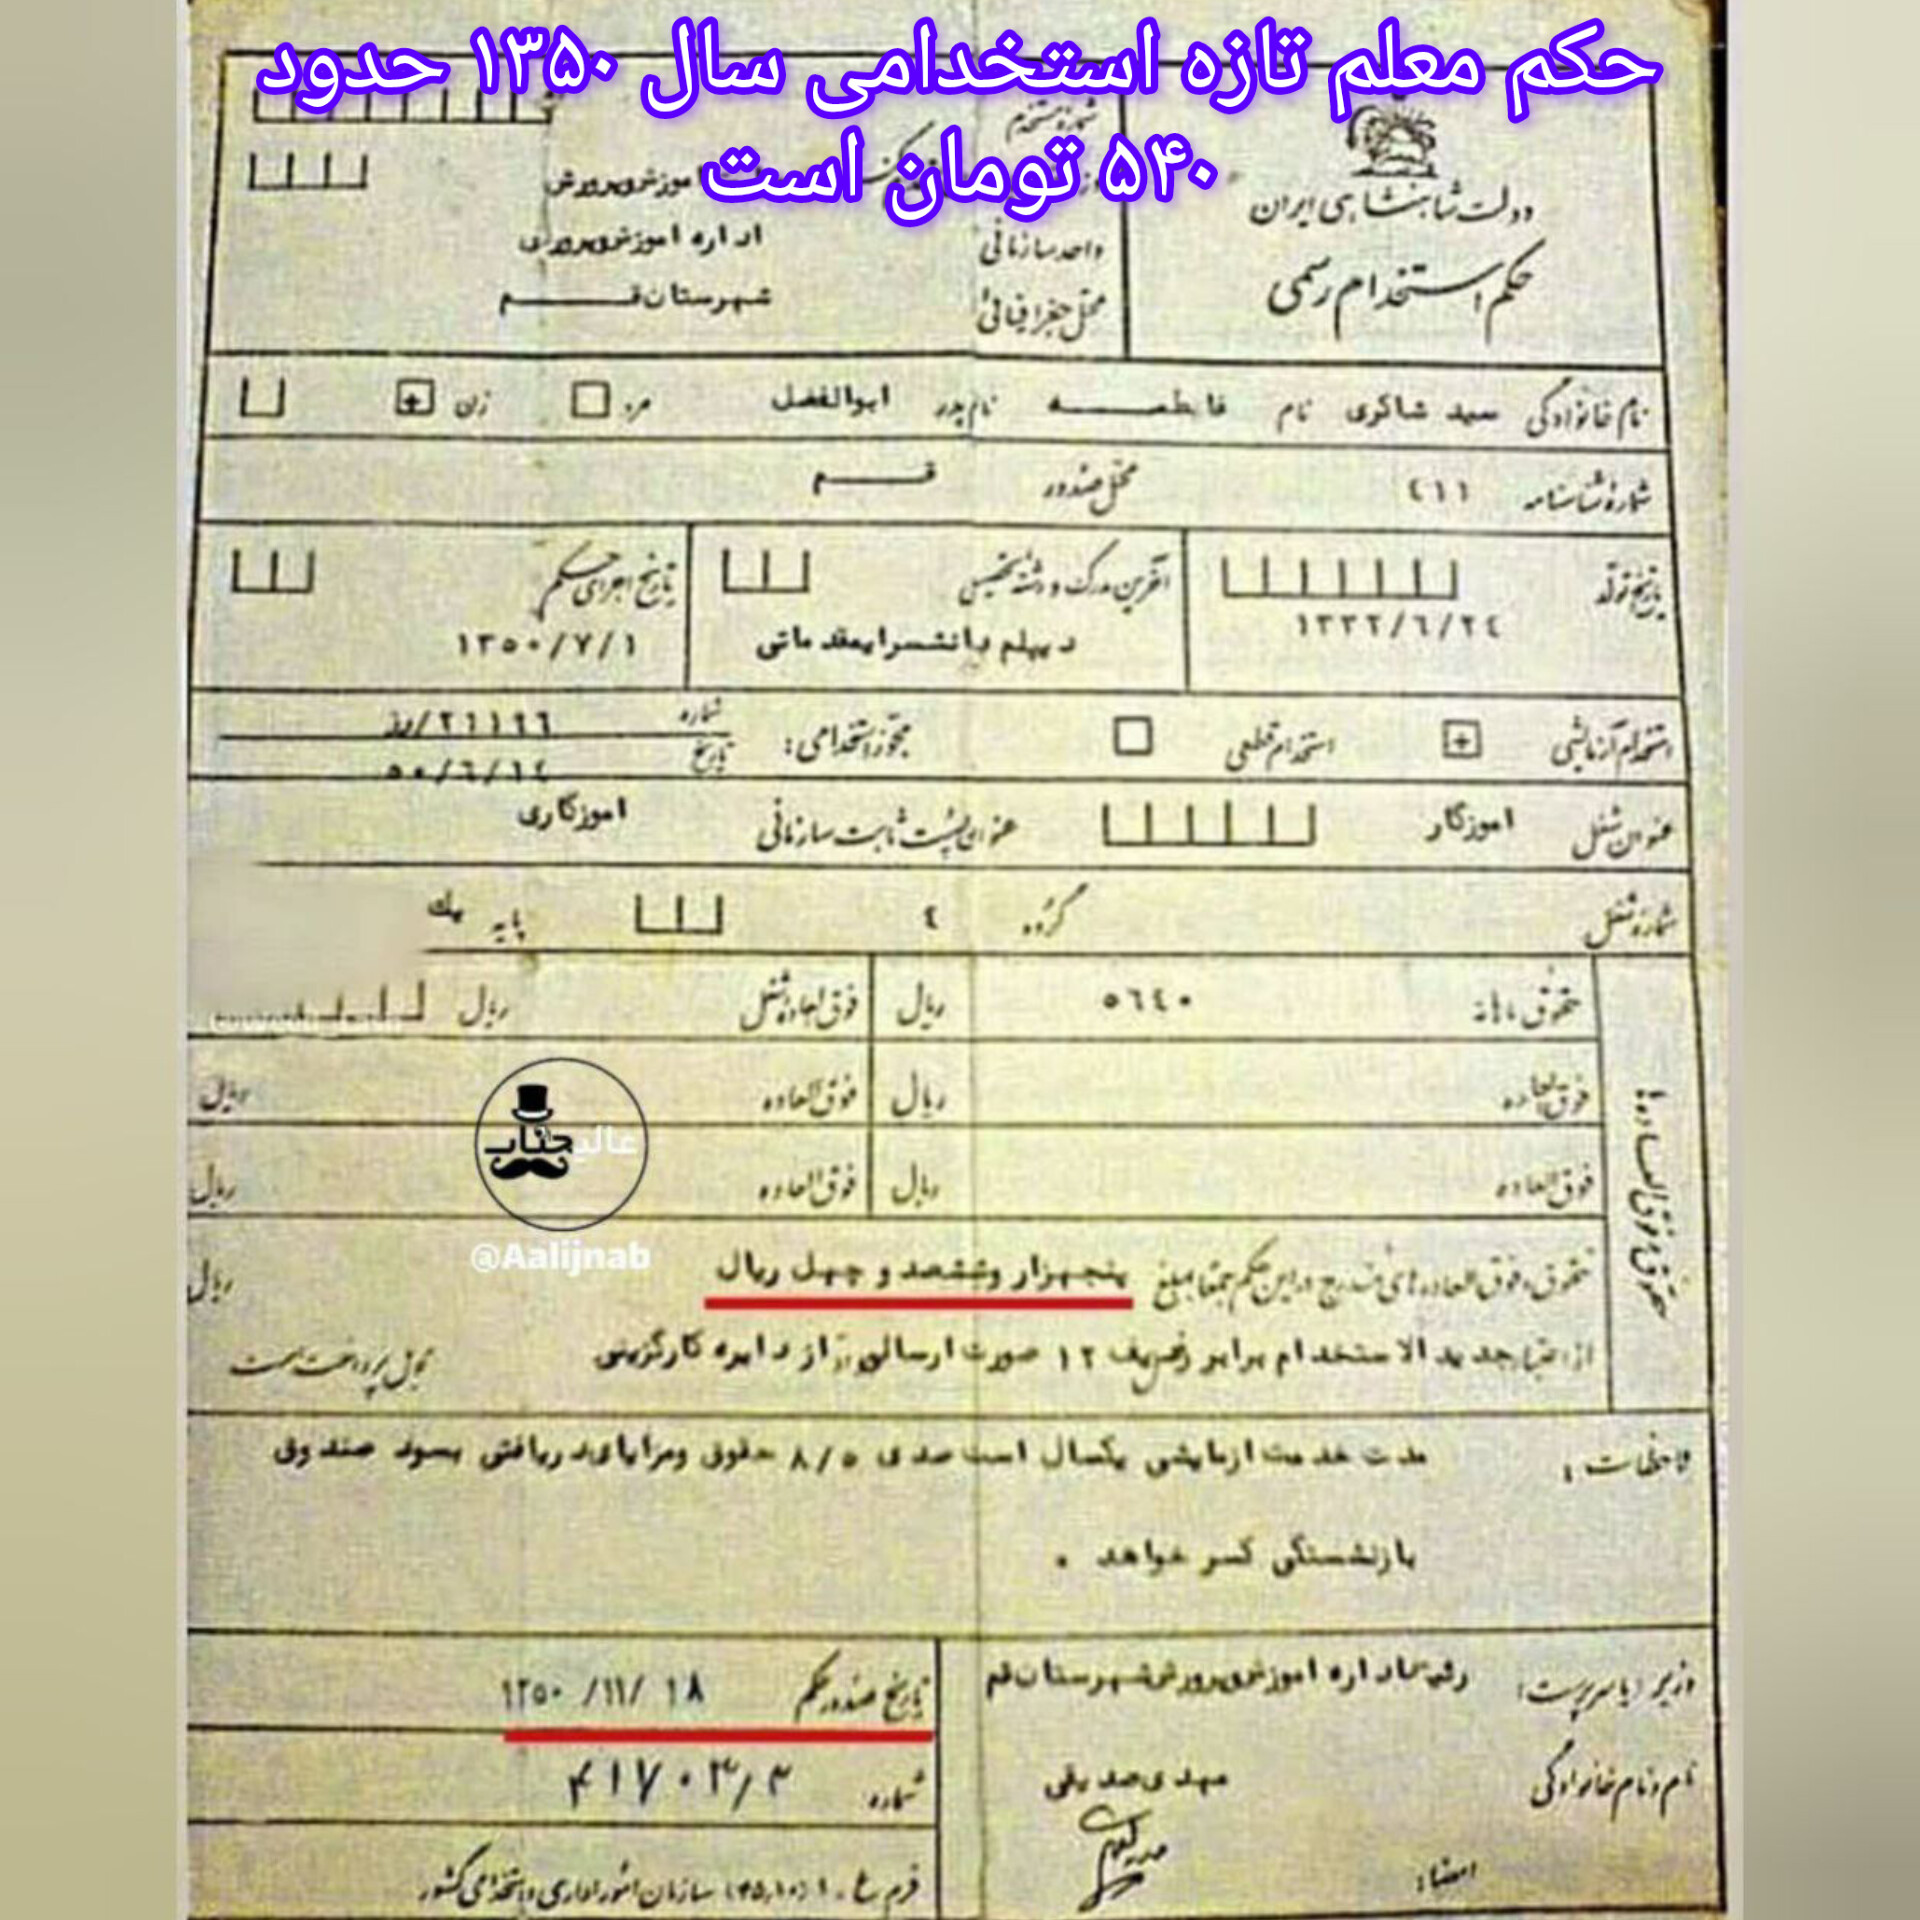 حکم معلم تازه استخدامی سال ۱۳۵۰ حدود
۵۴۰ تومان است
دولت شاهنشاهی ایران
حکم استخدام رسمی
شماره مستخدم
آموزش و پرورش
واحد سازمانی اداره آموزش و پرورش
محل جغرافیائی شهرستان قم
نام خانوادگی سید شاکری نام فاطمه نام پدر ابوالفضل مرد زن
شماره شناسنامه ٤١١ محل صدور قم
تاریخ تولد آخرین مدرک و رشته تحصیلی تاریخ اجرای حکم
۱۳۳۲/٦/٢٤ دیپلم دانشسرایمقدماتی ۱۳۵۰/۷/۱
استخدام آزمایشی استخدام قطعی مجوز استخدامی: شماره ۲۱۱۹٦/
تاریخ ۵۰/٦/۱٤
عنوان شغل اموزگار عنوان پست ثابت سازمانی اموزگاری
شماره شغل گروه ٤ پایه یک
حقوق و فوق العاده ها
حقوق ماهانه ٥٦٤٠ ریال فوق العاده شغل ریال
فوق العاده ریال فوق العاده ریال
فوق العاده ریال فوق العاده ریال
عالی جناب
@Aalijnab
حقوق و فوق العاده های مندرج در این حکم جمعا بمبلغ پنجهزار وششصد و چهل ریال ریال
جدید الاستخدام برابر ردیف ۱۲ صورت ارسالی از دایره کارگزینی قابل پرداخت است
ملاحظات : مدت خدمت ازمایشی یکسال است صدی ۸/۵ حقوق ومزایای دریافتی بسود صندوق
بازنشستگی کسر خواهد .
وزیر (یا سرپرست) رئیس اداره اموزش و پرورش شهرستان قم
تاریخ صدور حکم ۱۸ /۱۱/ ۱۳۵۰
نام و نام خانوادگی مهدی صدیقی
شماره ۴۱۷۰۳/۳
امضاء:
سازمان امور اداری و استخدامی کشور